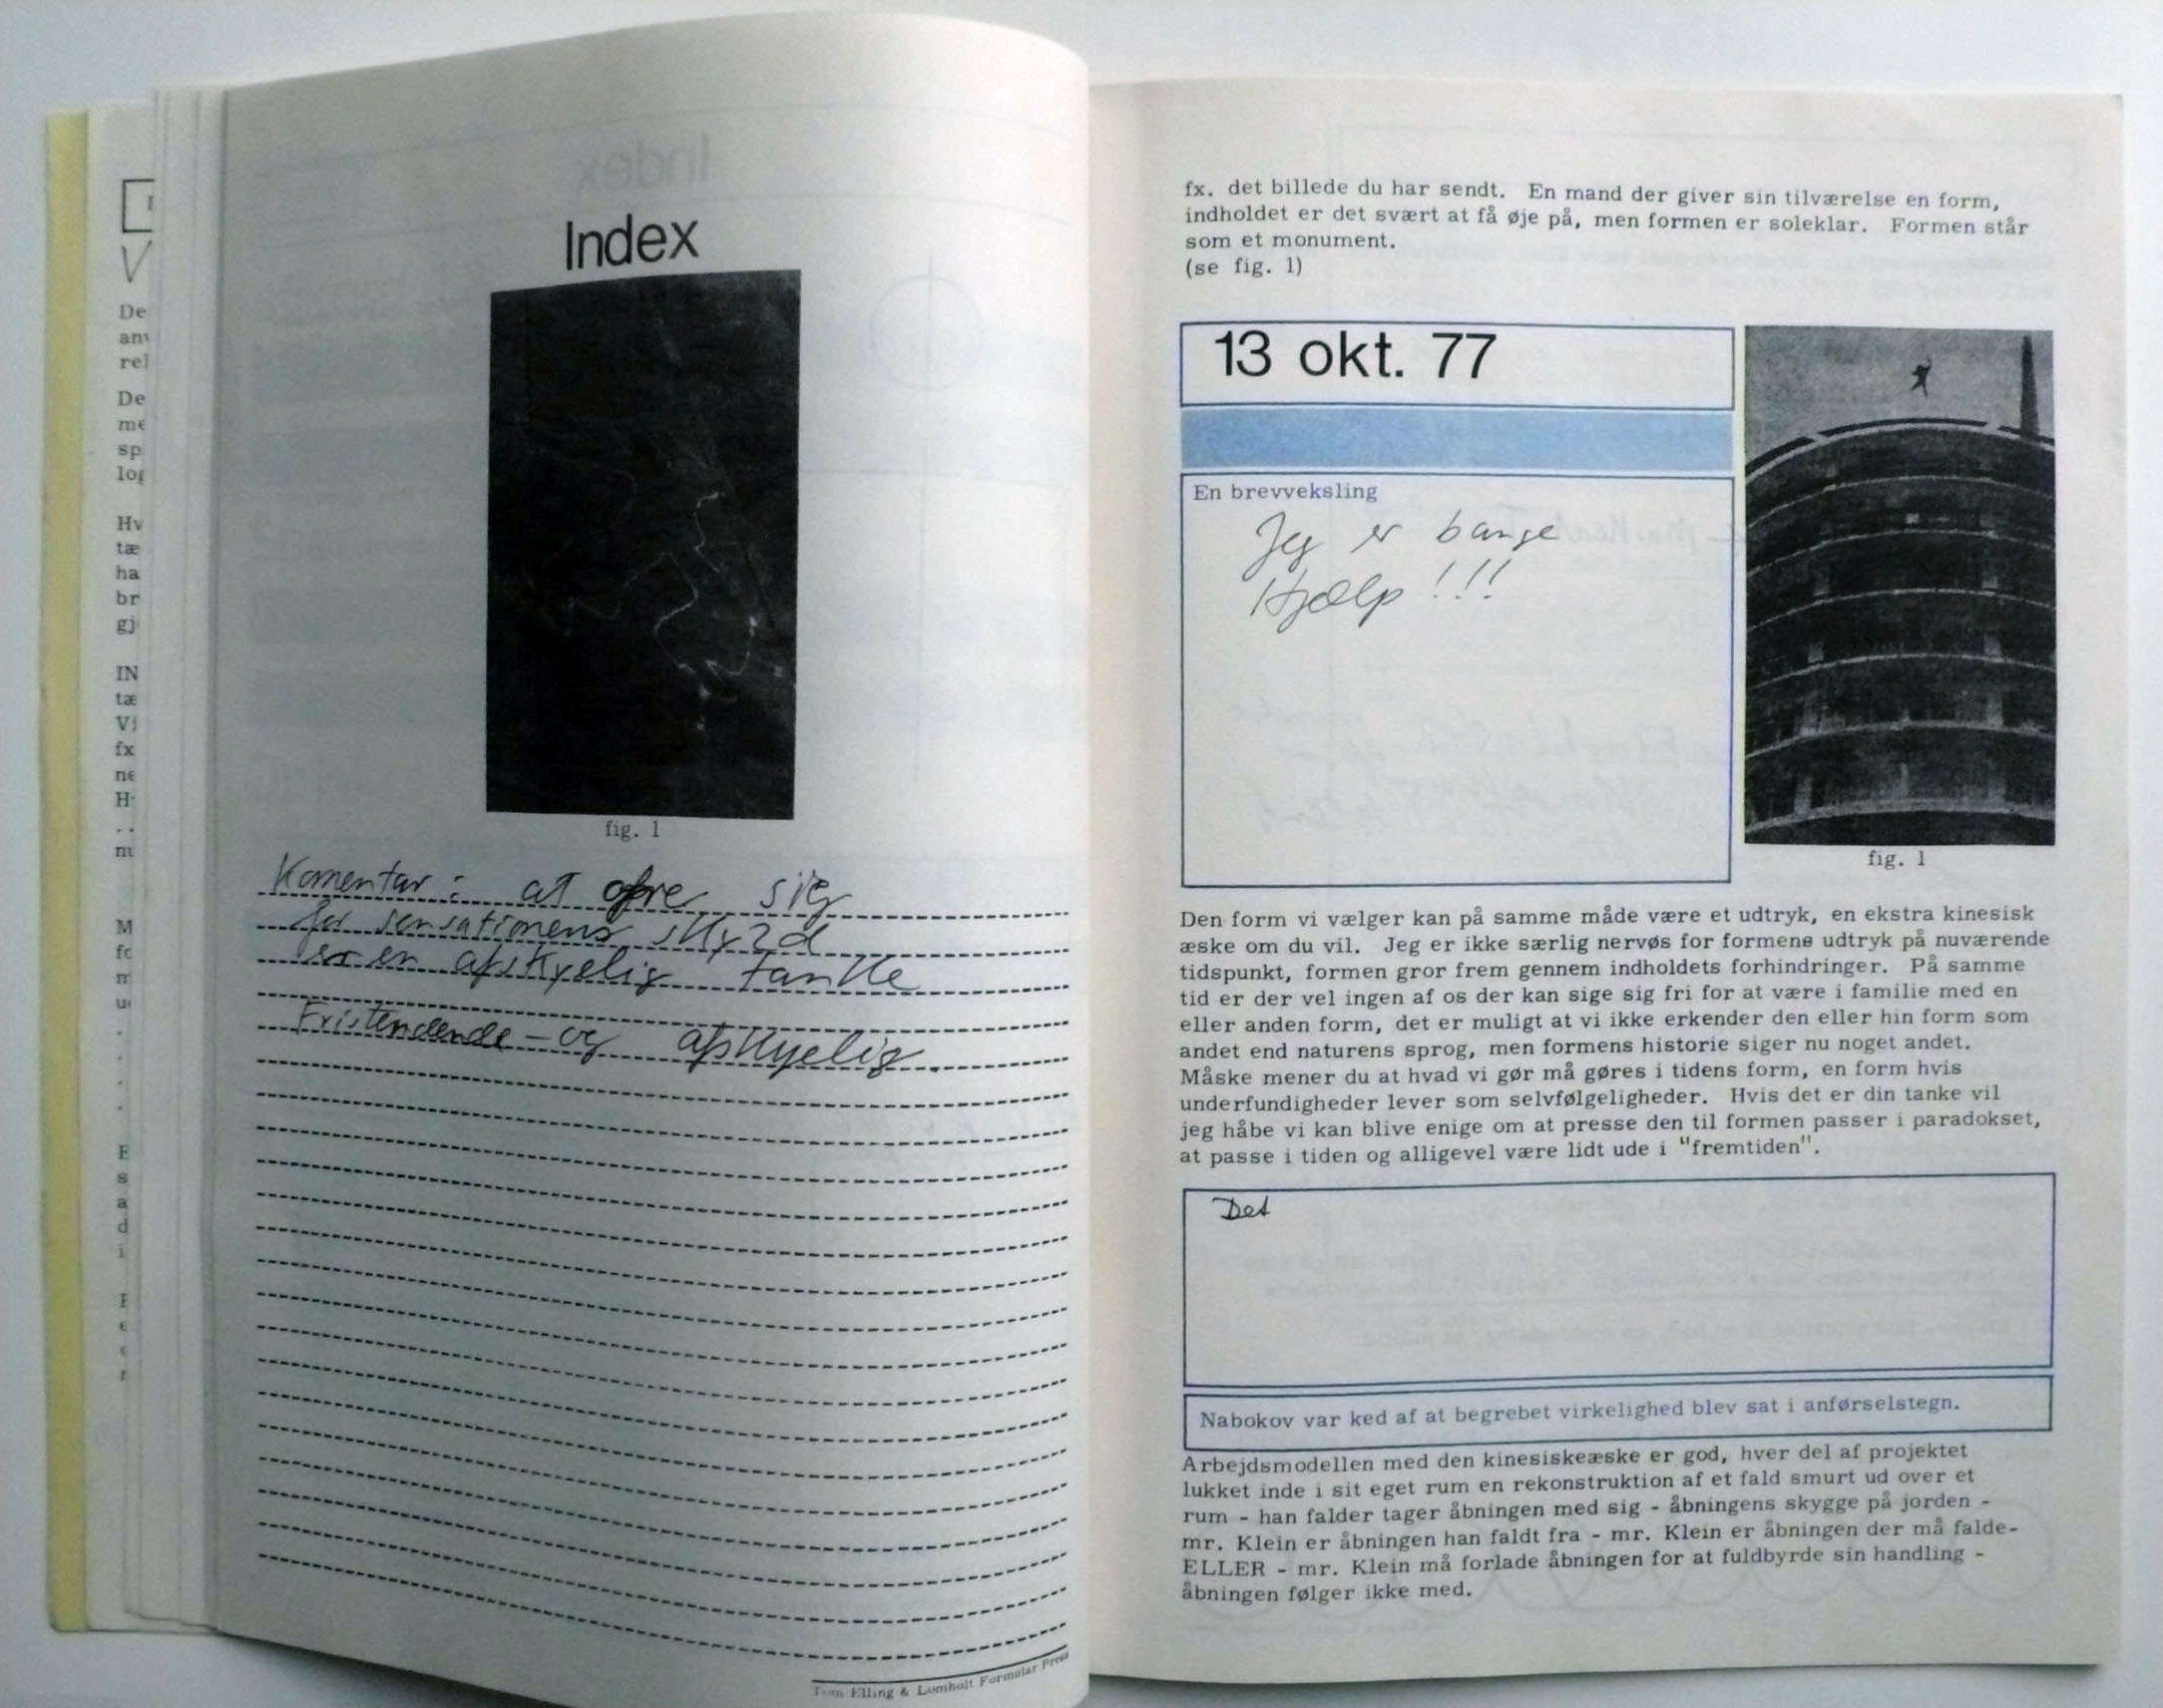 Index
fig. 1
Komentar: at ofre sig
for sensationens skyld
er en afskyelig tanke
Fristendende - og afskyelig.
Tom Elling & Lomholt Formular Press
De
rel
De
me
sp
log
Hv
tæ
ha
br
IN
tæ
fx
ne
fx. det billede du har sendt. En mand der giver sin tilværelse en form,
indholdet er det svært at få øje på, men formen er soleklar. Formen står
som et monument.
(se fig. 1)
13 okt. 77
En brevveksling
Jeg er bange
Hjælp!!!
fig. 1
Den form vi vælger kan på samme måde være et udtryk, en ekstra kinesisk
æske om du vil. Jeg er ikke særlig nervøs for formens udtryk på nuværende
tidspunkt, formen gror frem gennem indholdets forhindringer. På samme
tid er der vel ingen af os der kan sige sig fri for at være i familie med en
eller anden form, det er muligt at vi ikke erkender den eller hin form som
andet end naturens sprog, men formens historie siger nu noget andet.
Måske mener du at hvad vi gør må gøres i tidens form, en form hvis
underfundigheder lever som selvfølgeligheder. Hvis det er din tanke vil
jeg håbe vi kan blive enige om at presse den til formen passer i paradokset,
at passe i tiden og alligevel være lidt ude i "fremtiden".
Det
Nabokov var ked af at begrebet virkelighed blev sat i anførselstegn.
Arbejdsmodellen med den kinesiskeæske er god, hver del af projektet
lukket inde i sit eget rum en rekonstruktion af et fald smurt ud over et
rum - han falder tager åbningen med sig - åbningens skygge på jorden -
mr. Klein er åbningen han faldt fra - mr. Klein er åbningen der må falde-
ELLER - mr. Klein må forlade åbningen for at fuldbyrde sin handling -
åbningen følger ikke med.